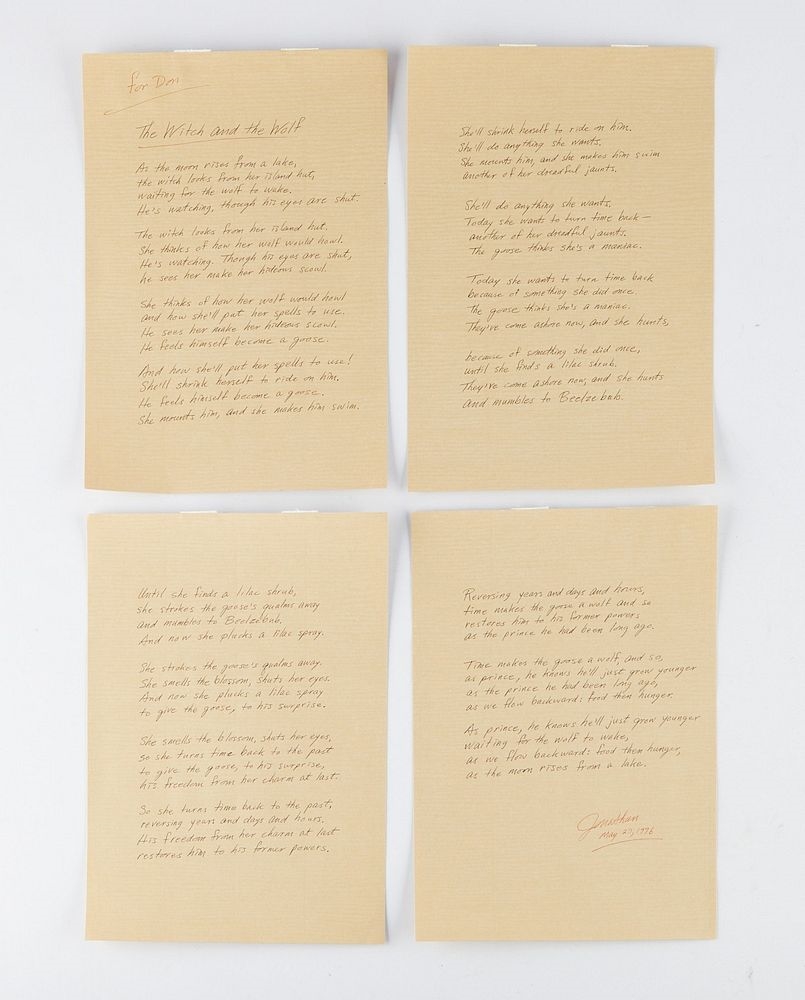 for Don
The Witch and the Wolf
As the moon rises from a lake,
the witch looks from her island hut,
waiting for the wolf to wake.
He's watching, though his eyes are shut.
The witch looks from her island hut.
She thinks of how her wolf would howl.
He's watching. Though his eyes are shut,
he sees her make her hideous scowl.
She thinks of how her wolf would howl
and how she'll put her spells to use.
He sees her make her hideous scowl.
He feels himself become a goose.
And how she'll put her spells to use!
She'll shrink herself to ride on him.
He feels himself become a goose.
She mounts him, and she makes him swim.
She'll shrink herself to ride on him.
She'll do anything she wants.
She mounts him, and she makes him swim
another of her dreadful jaunts.
She'll do anything she wants.
Today she wants to turn time back—
another of her dreadful jaunts.
The goose thinks she's a maniac.
Today she wants to turn time back
because of something she did once.
The goose thinks she's a maniac.
They've come ashore now, and she hunts,
because of something she did once,
until she finds a lilac shrub.
They've come ashore now, and she hunts
and mumbles to Beelzebub.
Until she finds a lilac shrub,
she strokes the goose's qualms away
and mumbles to Beelzebub.
And now she plucks a lilac spray.
She strokes the goose's qualms away.
She smells the blossom, shuts her eyes.
And now she plucks a lilac spray
to give the goose, to his surprise.
She smells the blossom, shuts her eyes,
so she turns time back to the past
to give the goose, to his surprise,
his freedom from her charm at last.
So she turns time back to the past,
reversing years and days and hours.
His freedom from her charm at last
restores him to his former powers.
Reversing years and days and hours,
time makes the goose a wolf and so
restores him to his former powers
as the prince he had been long ago.
Time makes the goose a wolf, and so,
as prince, he knows he'll just grow younger
as the prince he had been long ago,
as we flow backward: food then hunger.
As prince, he knows he'll just grow younger
waiting for the wolf to wake,
as we flow backward: food then hunger,
as the moon rises from a lake.
Jonathan
May 27, 1976